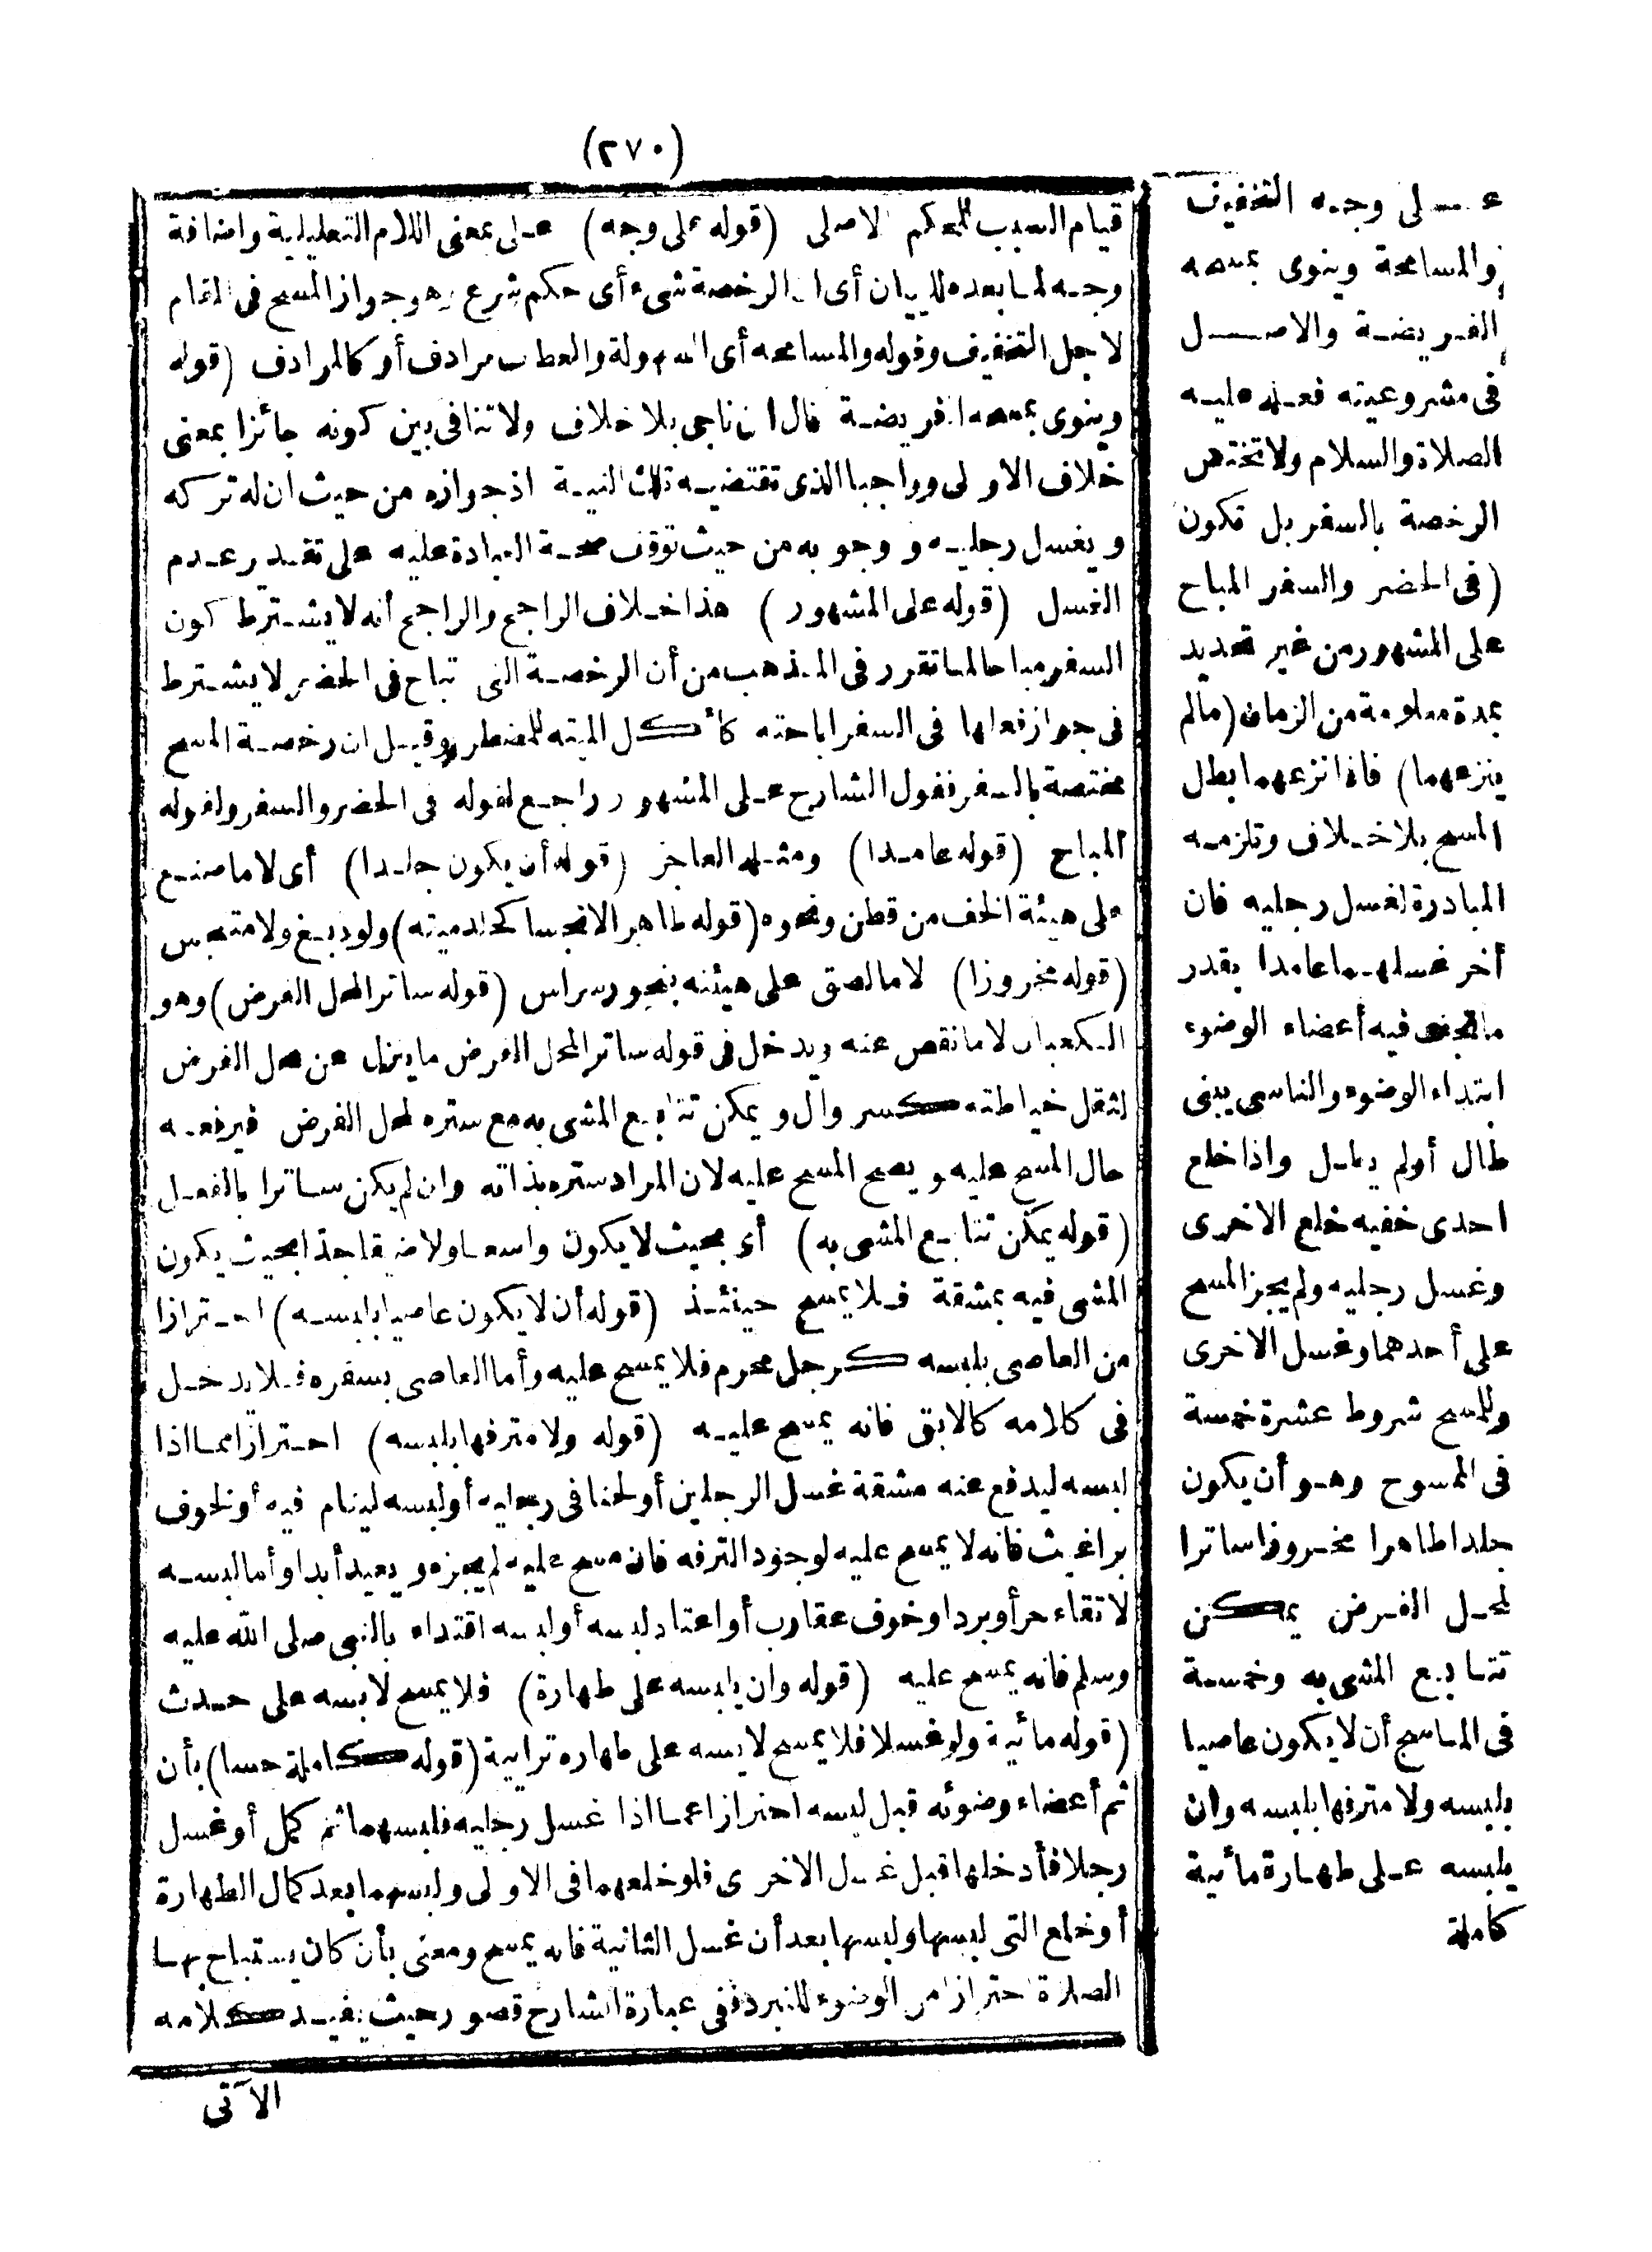 (٢٧٠)
على وجه التخفيف
والمسامحة وينوى بمسحه
الفريضة والاصل
فى مشروعيته فعله عليه
الصلاة والسلام ولا تختص
الرخصة بالسفر بل تكون
(فى الحضر والسفر المباح
على المشهور من غير تحديد
بمدة معلومة من الزمان (مالم
ينزعهما) فاذا نزعهما بطل
المسح بلا خلاف وتلزمه
المبادرة لغسل رجليه فان
أخر غسلهما عامدا بقدر
ما تجف فيه أعضاء الوضوء
ابتداء الوضوء والناسى يبنى
طال أولم يطل واذا خلع
احدى خفيه خلع الاخرى
وغسل رجليه ولم يجز المسح
على أحدهما وغسل الاخرى
وللمسح شروط عشرة خمسة
فى الممسوح وهو أن يكون
جلدا طاهرا مخروزا ساترا
لمحل الفرض يمكن
تتابع المشى به وخمسة
فى الماسح أن لا يكون عاصيا
بلبسه ولا مترفها بلبسه وان
يلبسه على طهارة مائية
كاملة
قيام السبب للحكم الاصلى (قوله على وجه) على بمعنى اللام التعليلية واضافة
وجه لما بعده للبيان أى الرخصة شىء أى حكم شرع وهو جواز المسح فى المقام
لاجل التخفيف وقوله والمسامحة أى السهولة والعطف مرادف أو كالمرادف (قوله
وينوى بمسحه الفريضة قال ابن ناجى بلا خلاف ولا تنافى بين كونه جائزا بمعنى
خلاف الاولى وواجبا الذى تقتضيه تلك النية اذ جوازه من حيث ان له تركه
ويغسل رجليه ووجوبه من حيث توقف صحة العبادة عليه على تقدير عدم
الغسل (قوله على المشهور) هذا خلاف الراجح والراجح أنه لا يشترط كون
السفر مباحا لما تقرر فى المذهب من أن الرخصة التى تباح فى الحضر لا يشترط
فى جواز فعلها فى السفر اباحته كأكل الميته للمضطر وقيل ان رخصة المسح
مختصة بالسفر فقول الشارح على المشهور راجع لقوله فى الحضر والسفر ولقوله
المباح (قوله عامدا) ومثله العاجز (قوله أن يكون جلدا) أى لا ما صنع
على هيئة الخف من قطن ونحوه (قوله طاهرا لا نجسا كجلد ميته) ولو دبغ ولا متنجس
(قوله مخروزا) لا ما لصق على هيئته بنحو رسراس (قوله ساترا لمحل الفرض) وهو
الكعبان لا ما نقص عنه ويدخل فى قوله ساترا لمحل الفرض ما ينزل عن محل الفرض
لثقل خياطته كسروال ويمكن تتابع المشى به مع ستره لمحل الفرض فيرفعه
حال المسح عليه ويصح المسح عليه لان المراد ستره بذاته وان لم يكن ساترا بالفعل
(قوله يمكن تتابع المشى به) أى بحيث لا يكون واسعا ولا ضيقا جدا بحيث يكون
المشى فيه بمشقة فلا يمسح حينئذ (قوله أن لا يكون عاصيا بلبسه) احترازا
من العاصى بلبسه كرجل محرم فلا يمسح عليه وأما العاصى بسفره فلا يدخل
فى كلامه كالابق فانه يمسح عليه (قوله ولا مترفها بلبسه) احترازا مما اذا
لبسه ليدفع عنه مشقة غسل الرجلين أو لحنا فى رجليه أو لبسه لينام فيه أو لخوف
براغيث فانه لا يمسح عليه لوجود الترفه فان مسح عليه لم يجزه ويعيد أبدا وأما لبسه
لا تقاء حر أو برد او خوف عقارب أو اعتاد لبسه أو لبسه اقتداء بالنبى صلى الله عليه
وسلم فانه يمسح عليه (قوله وان يلبسه على طهارة) فلا يمسح لابسه على حدث
(قوله مائية ولو غسلا فلا يمسح لابسه على طهاره ترابية (قوله كاملة حسا) بأن
تم أعضاء وضوئه قبل لبسه احترازا عما اذا غسل رجليه فلبسهما ثم كمل أو غسل
رجلا فأدخلها قبل غسل الاخرى فلو خلعهما فى الاولى ولبسهما بعد كمال الطهارة
أو خلع التى لبسها ولبسها بعد أن غسل الثانية فانه يمسح ومعنى بأن كان يستباح بها
الصلاة احترازا من الوضوء للتبرد ففى عبارة الشارح قصور حيث يفيد كلامه
الآتى